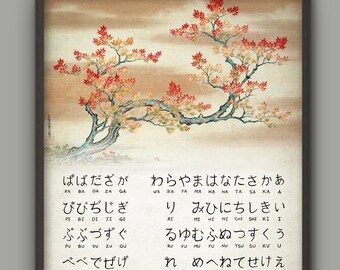 ぱばだざが わらやまはなたさかあ
PA BA DA ZA GA WA RA YA MA HA NA TA SA KA A
ぴびぢじぎ り みひにちしきい
PI BI DI JI GI RI MI HI NI CHI SHI KI I
ぷぶづずぐ るゆむふぬつすくう
PU BU ZU ZU GU RU YU MU FU NU TSU SU KU U
ぺべでぜげ れ めへねてせけえ